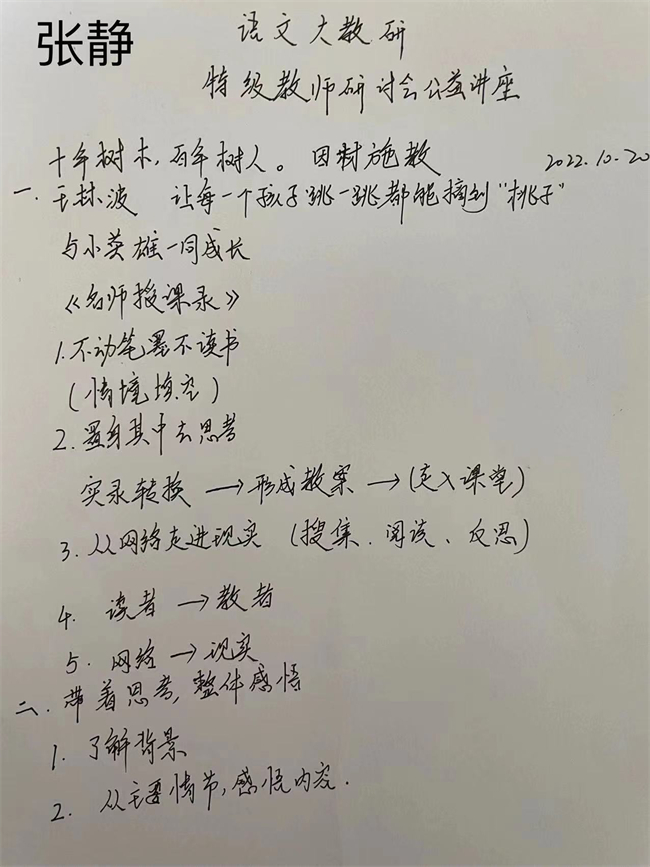 张静
语文大教研
特级教师研讨会公益讲座
十年树木,百年树人。因材施教 2022.10.20
一. 王林波 让每一个孩子跳一跳都能摘到“桃子”
与小英雄一同成长
《名师授课录》
1.不动笔墨不读书
(情境填空)
2.置身其中去思考
实录转换→形成教案→(走入课堂)
3.从网络走进现实 (搜集、阅读、反思)
4. 读者→教者
5. 网络→现实
二. 带着思考,整体感悟
1. 了解背景
2. 从主要情节,感悟内容.